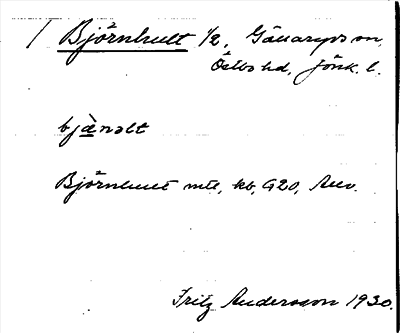 Björnhult 1/2, Gällaryds sn,
Östbo hd, Jönk. l.
bjä̀nəlt
Björnhult mtl, kb, G20, Anv.
Fritz Andersson 1930.